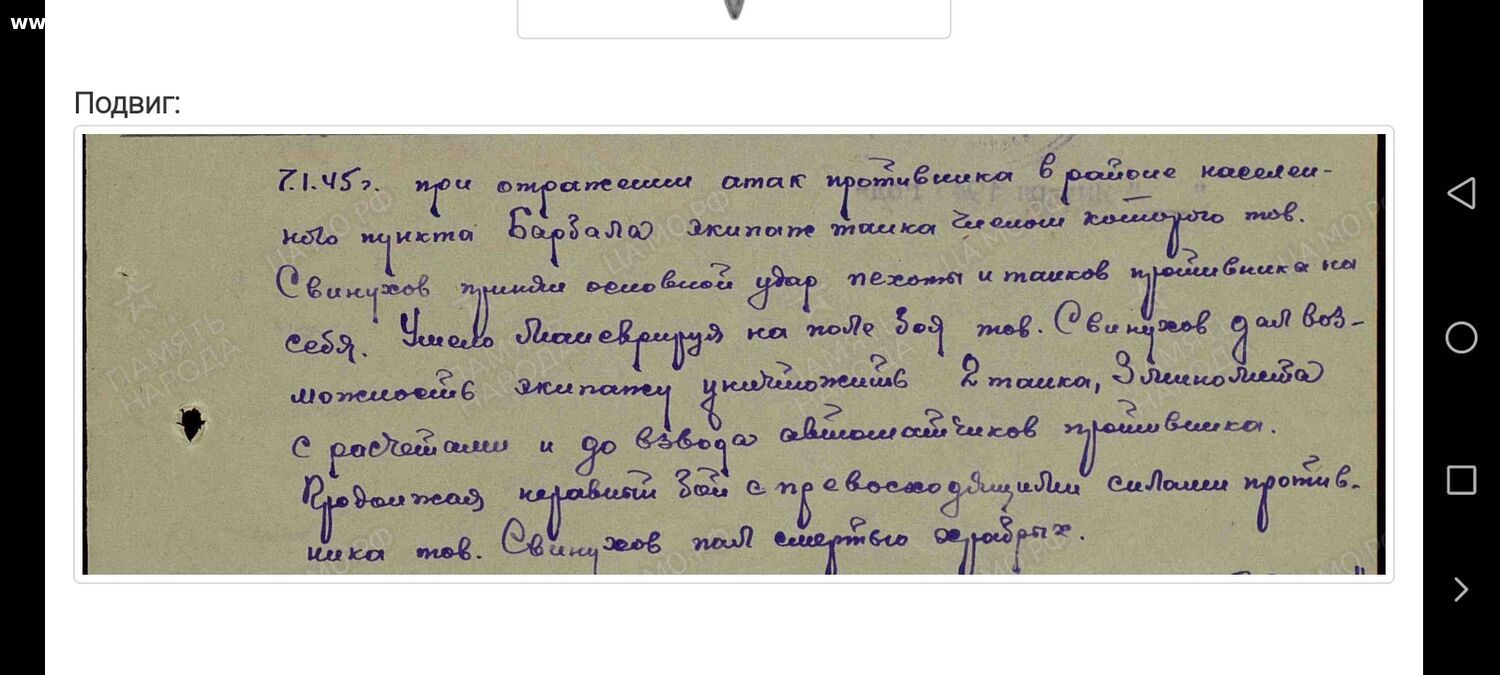 ww
Подвиг:
7.1.45г. при отражении атак противника в районе населен-
ного пункта Барбала экипаж танка членом которого тов.
Свинухов принял основной удар пехоты и танков противника на
себя. Умело маневрируя на поле боя тов. Свинухов дал воз-
можность экипажу уничтожить 2 танка, 3 миномета
с расчетами и до взвода автоматчиков противника.
Продолжая неравный бой с превосходящими силами против-
ника тов. Свинухов пал смертью храбрых.
ПАМЯТЬ
НАРОДА
ЦАМО.РФ